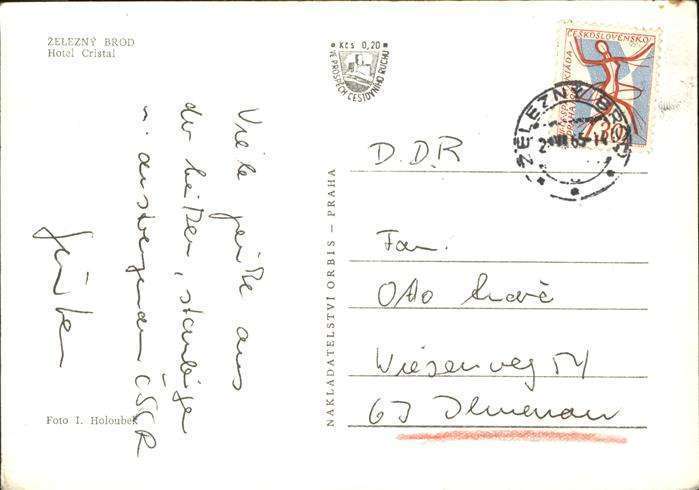 ŽELEZNÝ BROD
Hotel Cristal
Kčs 0,20
VE PROSPĚCH CESTOVNÍHO RUCHU
ČESKOSLOVENSKO
ŽELEZNÝ BROD
65-14
Viele Grüße aus
der heißen, staubigen
u. anstrengenden ČSSR
Foto I. Holoubek
NAKLADATELSTVÍ ORBIS – PRAHA
D.D.R
Fam.
Otto
Wiesenweg 54
63 Ilmenau